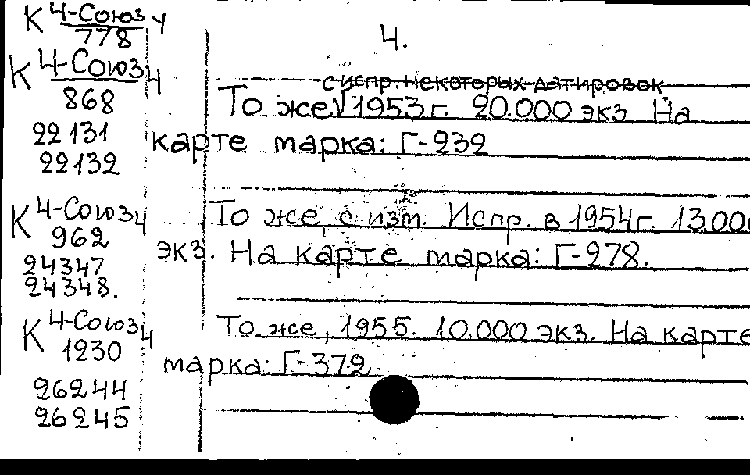 К 4-Союз 4
778
4.
К 4-Союз 4
868
22131
22132
с испр. некоторых датировок
То же √ 1953 г. 20.000 экз. На
карте марка: Г-232
К 4-Союз 4
962
24347
24348.
То же, с изм. Испр. в 1954 г. 13.000
экз. На карте марка: Г-278.
К 4-Союз 4
1230
26244
26245
То же, 1955. 10.000 экз. На карте
марка: Г-372